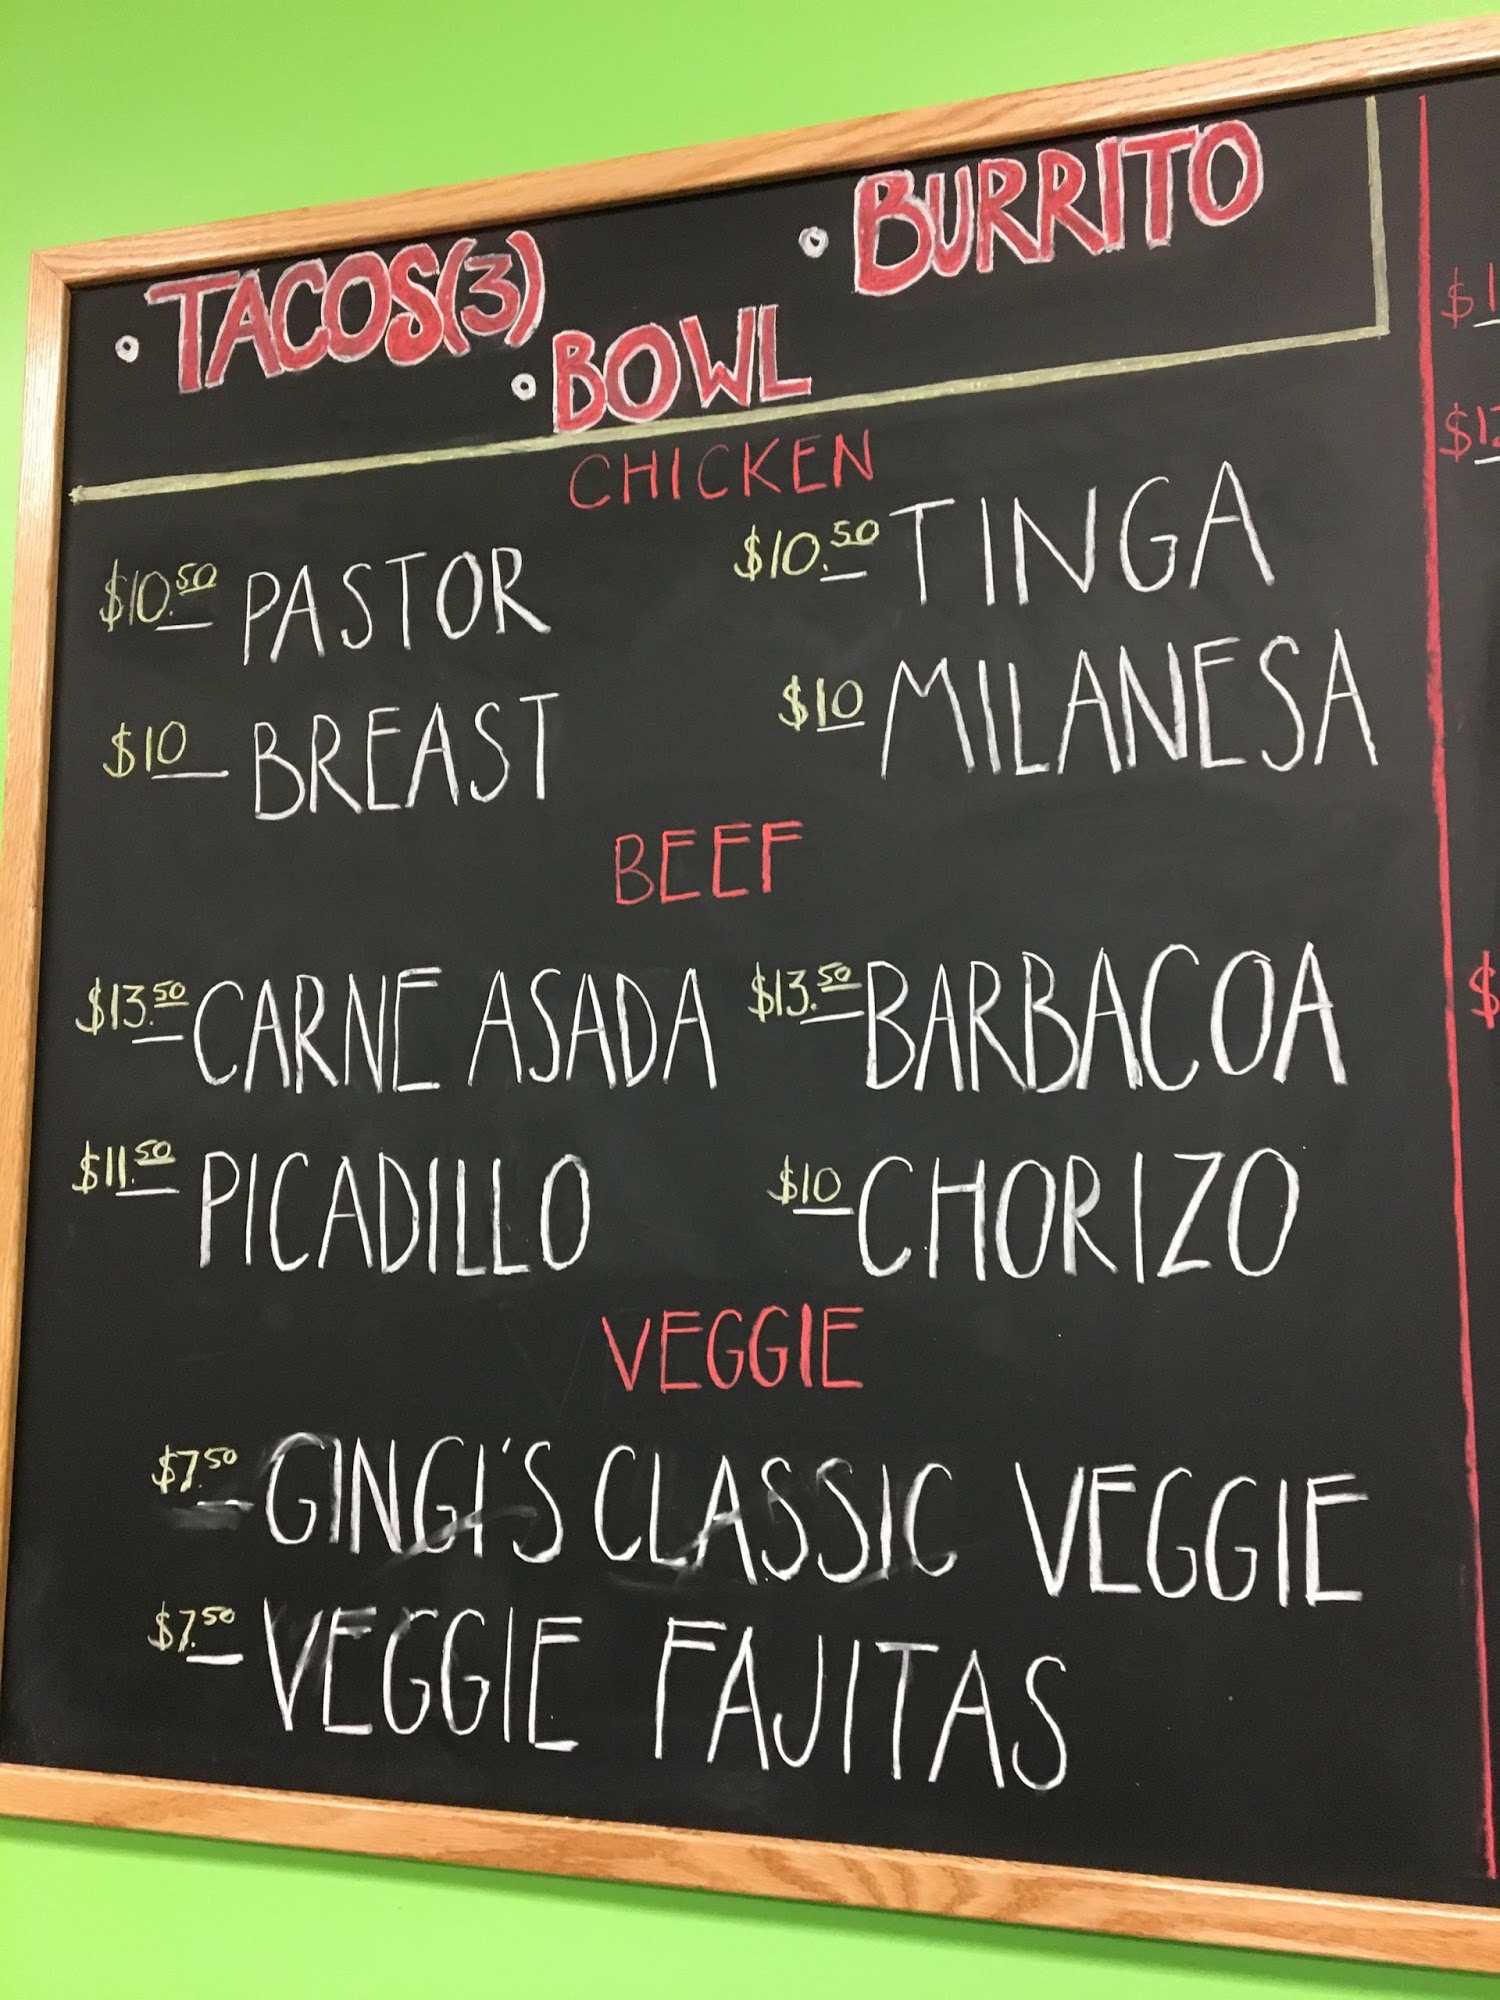 • TACOS(3)
• BOWL
• BURRITO
CHICKEN
$10.50 PASTOR
$10.50 TINGA
$10 BREAST
$10 MILANESA
BEEF
$13.50 CARNE ASADA
$13.50 BARBACOA
$11.50 PICADILLO
$10 CHORIZO
VEGGIE
$7.50 GINGI'S CLASSIC VEGGIE
$7.50 VEGGIE FAJITAS